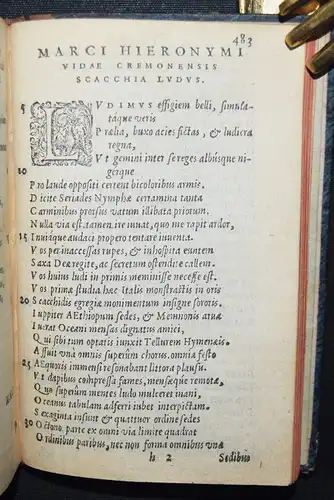 483
MARCI HIERONYMI
VIDAE CREMONENSIS
SCACCHIA LVDVS.
5 LVDIMVS effigiem belli, simula-
taque veris
Prœlia, buxo acies fictas, & ludicra
regna,
Vt gemini inter se reges albúsque ni-
gérque
10
Pro laude oppositi certent bicoloribus armis.
Dicite Seriades Nymphæ certamina tanta
Carminibus prorsus vatum illibata priorum.
Nulla via est. tamen ire iuuat, quo me rapit ardor,
15 Inuiáque audaci propero tentare iuuenta.
Vos per inaccessas rupes, & inhospita euntem
Saxa Deæ regite, ac secretum ostendite callem.
Vos huius ludi in primis meminisse necesse est.
Vos prima studia hæc Italis monstrastis in oris
20 Scacchidis egregiæ monimentum insigne sororis.
Iuppiter AEthiopum sedes, & Memnonis arua
Iu rat Oceani mensas dignatus amici,
Qui sibi tum optatis iunxit Tellurem Hymenæis.
Affuit vnà omnis superûm chorus. omnia festo
25 AEquoris immensi resonabant littora plausu.
Vt dapibus compressa fames, mensæque remotæ,
Quo superûm mentes ludo mulceret inani,
Oceanus tabulam adferri iubet interpictam.
Sexaginta insunt & quattuor ordine sedes
30 Octono. parte ex omni via limite quadrat
Ordinibus paribus, nec non forma omnibus vna
h 2 Sedibus